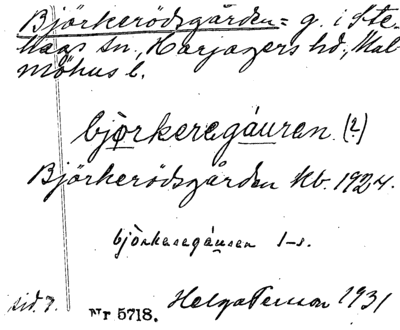 Björkerödsgården = g. i Ste-
hags sn., Harjagers hd., Mal-
möhus l.
björkeregáuren (?)
Björkerödsgården Kb. 1924.
björkeregáuren 1-s.
sid. 7. Nr 5718. Helga Persson 1931